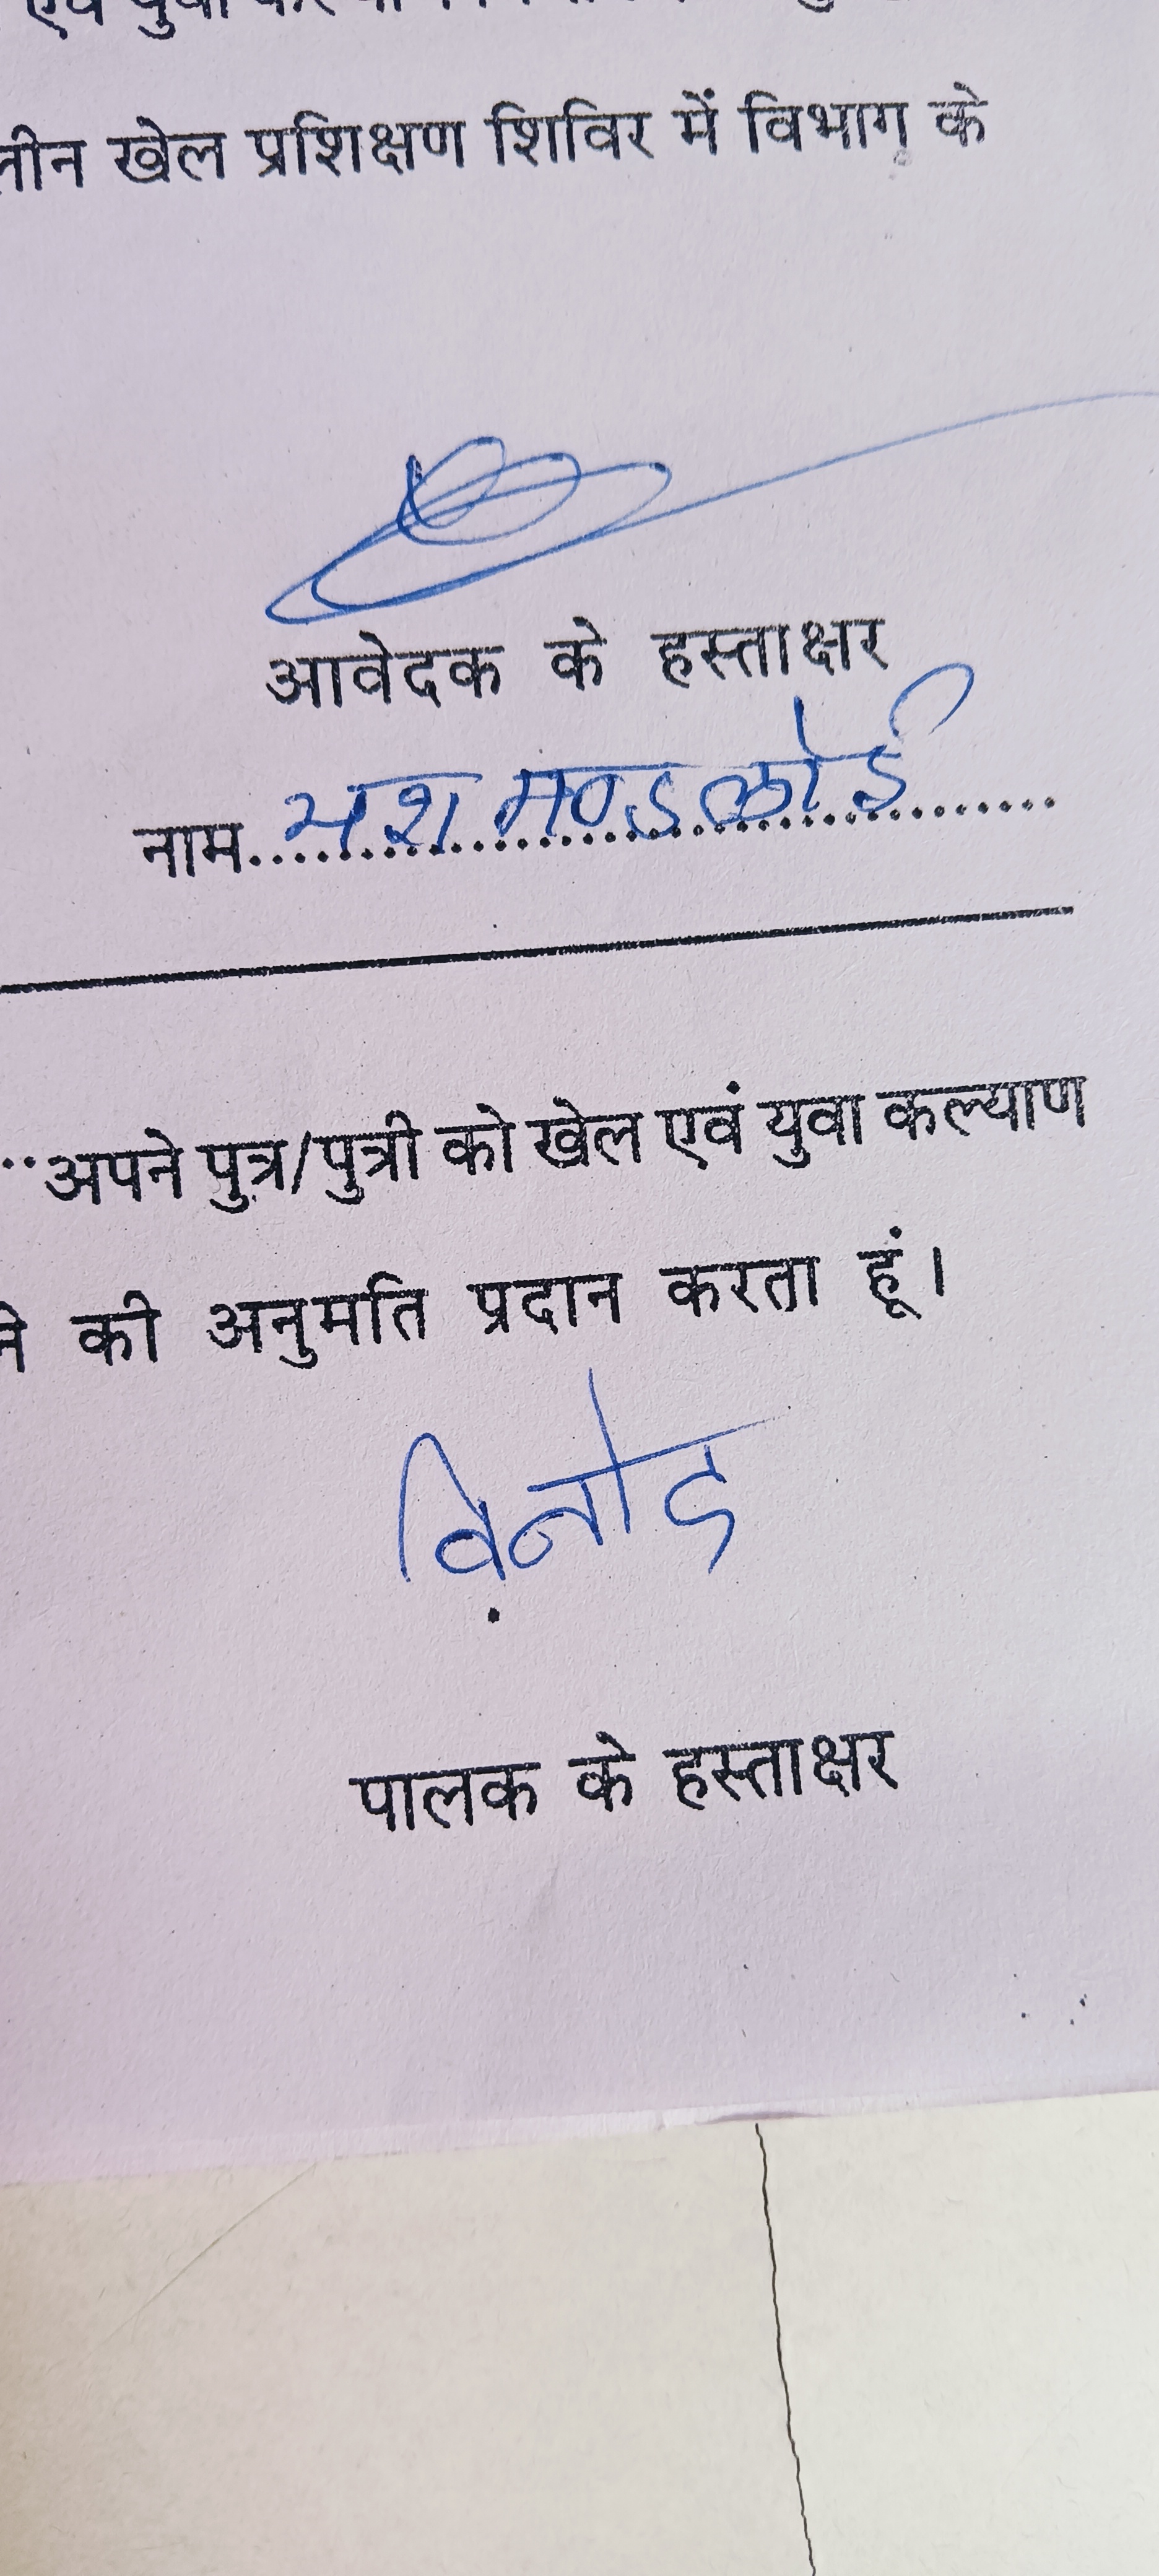 एवं युवा
लीन खेल प्रशिक्षण शिविर में विभाग के
आवेदक के हस्ताक्षर
नाम..... यश मण्डलोई .....
..अपने पुत्र/पुत्री को खेल एवं युवा कल्याण
ने की अनुमति प्रदान करता हूं।
विनोद
पालक के हस्ताक्षर